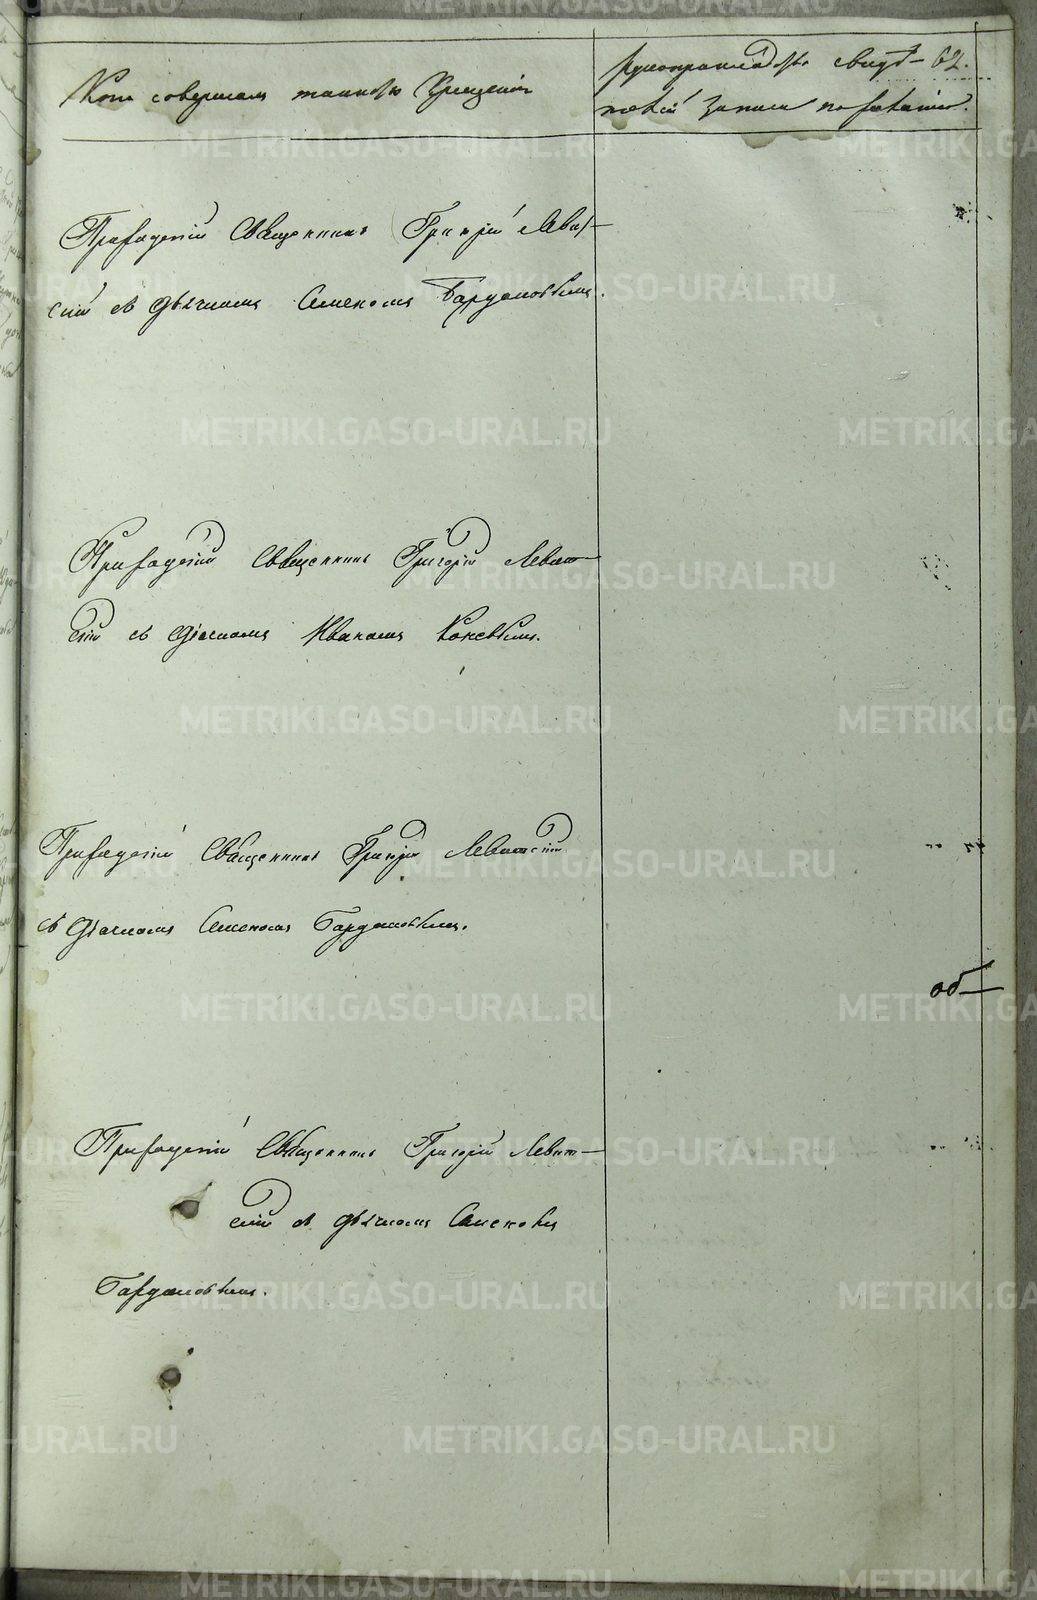 Кто совершал таинство Крещенія
Рукоприкладство свидѣ- 62.
телей записи по желанію.
Приходскій Священникъ Григорій Левит-
скій съ дьячкомъ Семеномъ Бардаковымъ.
Приходскій Священникъ Григорій Левит-
скій съ дьячкомъ Иваномъ Коневымъ.
Приходскій Священникъ Григорій Левитскій
съ дьячкомъ Семеномъ
об
Приходскій Священникъ Григорій Левит-
скій съ дьячкомъ Семеномъ
METRIKI.GASO-URAL.RU